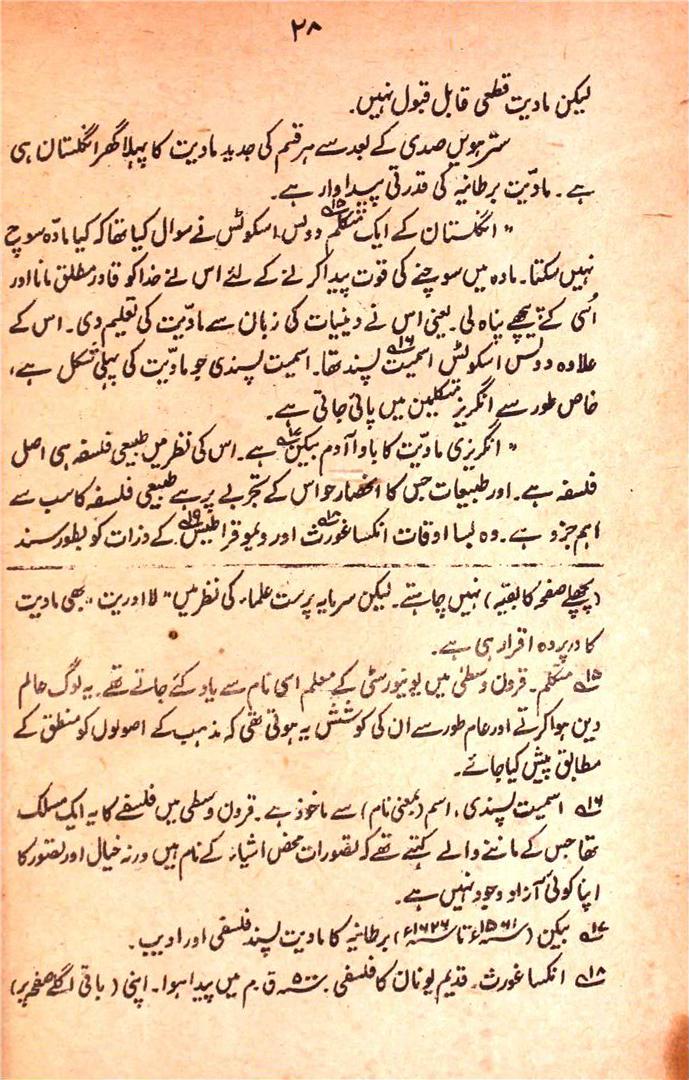 ۲۸
لیکن مادیت قطعی قابل قبول نہیں۔
سترہویں صدی کے بعد سے ہر قسم کی جدید مادیت کا پہلا گھر انگلستان ہی
ہے۔ مادّیت برطانیہ کی قدرتی پیداوار ہے۔
"انگلستان کے ایک متکلم ۱۵؎ دونس اسکوٹس نے سوال کیا تھا کہ کیا مادّہ سوچ
نہیں سکتا۔ مادہ میں سوچنے کی قوت پیدا کرنے کے لئے اس نے خدا کو قادر مطلق مانا اور
اُسی کے پیچھے پناہ لی۔ یعنی اس نے دینیات کی زبان سے مادّیت کی تعلیم دی۔ اس کے
علاوہ دونس اسکوٹس اسمیت ۱۶؎ پسند تھا۔ اسمیت پسندی جو مادّیت کی پہلی شکل ہے،
خاص طور سے انگریز متکلمین میں پائی جاتی ہے۔
"انگریزی مادّیت کا باوا آدم بیکن ۱۷؎ ہے۔ اس کی نظر میں طبیعی فلسفہ ہی اصل
فلسفہ ہے۔ اور طبیعات جس کا انحصار حواس کے تجربے پر ہے طبیعی فلسفہ کا سب سے
اہم جزو ہے۔ وہ بسا اوقات انکساغورث ۱۸؎ اور دیموقراطیس ۱۹؎ کے ذرات کو بطور سند
(پچھلے صفحہ کا بقیہ) نہیں چاہتے۔ لیکن سرمایہ پرست علماء کی نظر میں "لا ادریت" بھی مادیت
کا در پردہ اقرار ہی ہے۔
۱۵؎ متکلم۔ قرون وسطیٰ میں یونیورسٹی کے معلم اسی نام سے یاد کئے جاتے تھے۔ یہ لوگ عالم
دین ہوا کرتے اور عام طور سے ان کی کوشش یہ ہوتی تھی کہ مذہب کے اصولوں کو منطق کے
مطابق پیش کیا جائے۔
۱۶؎ اسمیت پسندی، اسم (بمعنی نام) سے ماخوذ ہے۔ قرون وسطی میں فلسفے کا یہ ایک مسلک
تھا جس کے ماننے والے کہتے تھے کہ تصورات محض اشیاء کے نام ہیں ورنہ خیال اور تصور کا
اپنا کوئی آزاد وجود نہیں ہے۔
۱۷؎ بیکن (۱۵۶۱ء تا ۱۶۲۶ء) برطانیہ کا مادیت پسند فلسفی اور ادیب۔
۱۸؎ انکساغورث۔ قدیم یونان کا فلسفی۔ ۵۰۰ ق۔م میں پیدا ہوا۔ اپنی (باقی اگلے صفحہ پر)